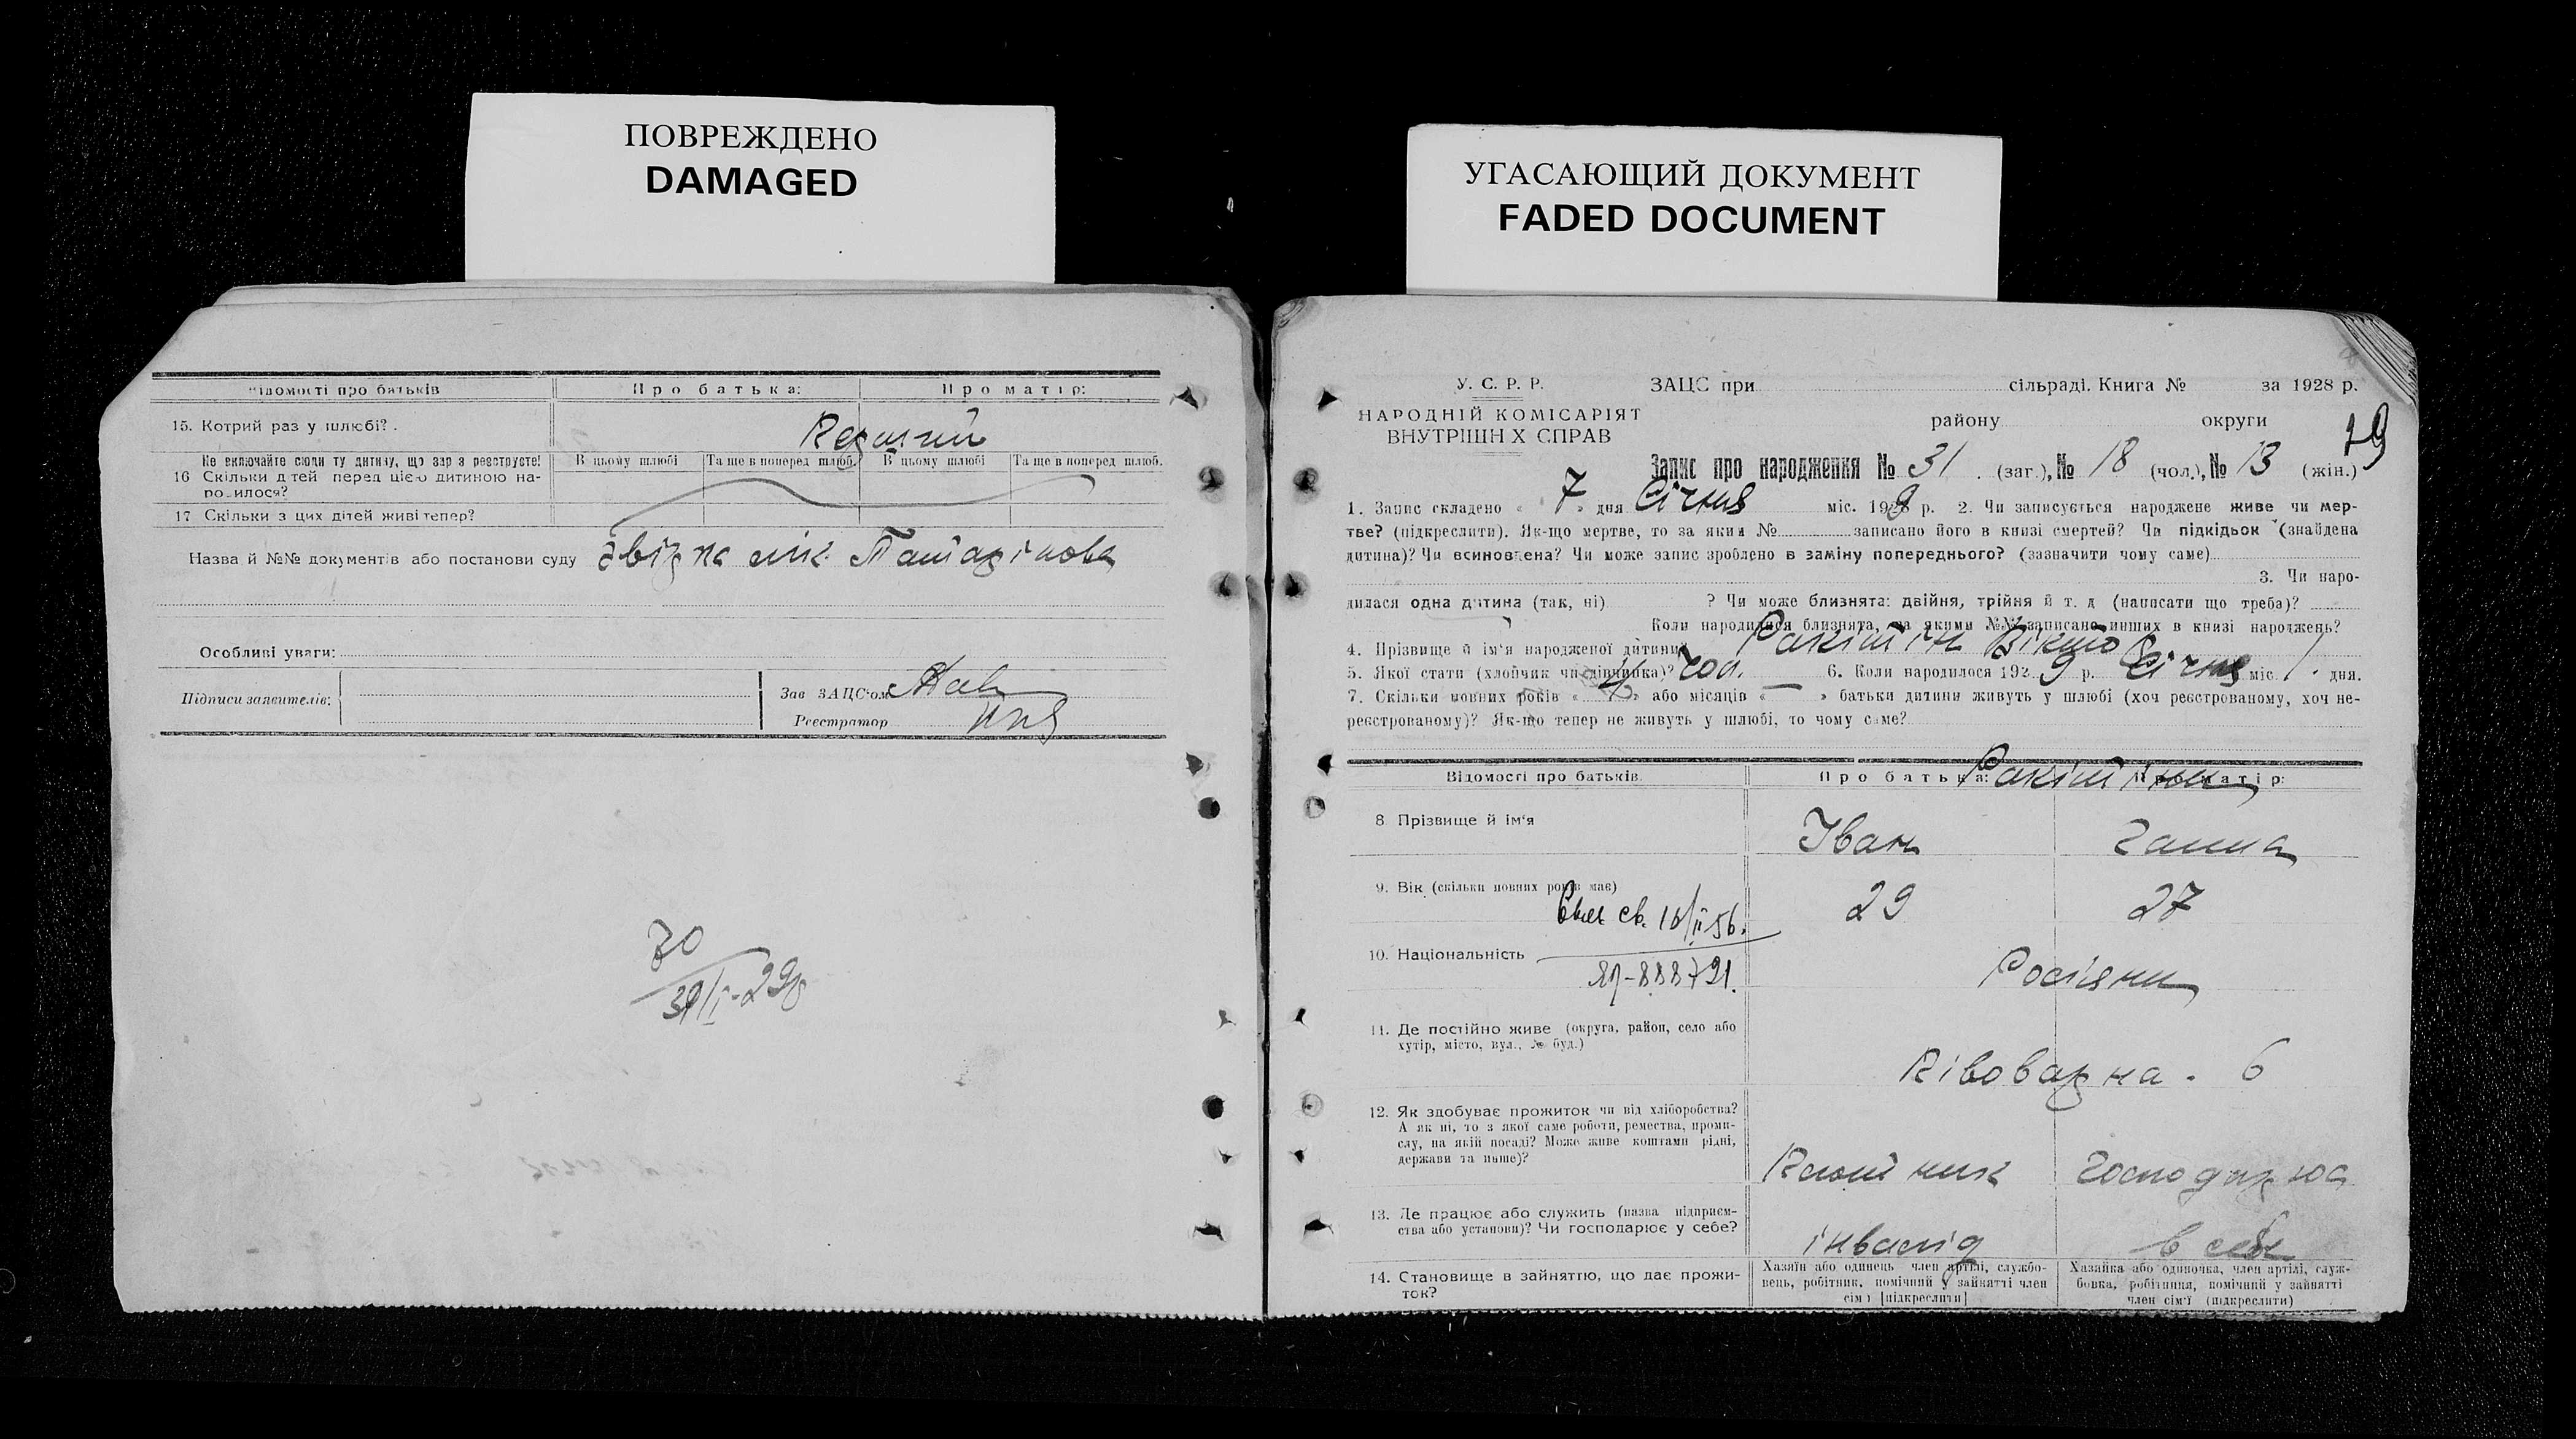 ПОВРЕЖДЕНО
DAMAGED
УГАСАЮЩИЙ ДОКУМЕНТ
FADED DOCUMENT
Відомості про батьків Про батька: Про матір:
15. Котрий раз у шлюбі?.
Не включайте сюди ту дитину, що зараз реєструєте! В цьому шлюбі Та ще в поперед шлюб. В цьому шлюбі Та ще в поперед шлюб.
16 Скільки дітей перед цією дитиною на-
родилося?
17 Скільки з цих дітей живі тепер?
Назва й №№ документів або постанови суду
Особливі уваги:
Підписи заявителів: Зав ЗАЦС'ом
Реєстратор
У. С. Р. Р. ЗАЦС при сільраді. Книга № за 1928 р.
НАРОДНІЙ КОМІСАРІЯТ району округи
ВНУТРІШНІХ СПРАВ
Запис про народження № 31 (заг.), № 18 (чол.), № 13 (жін.)
1. Запис складено « 7 » дня Січня міс. 1929 р. 2. Чи записується народжене живе чи мер-
тве? (підкреслити). Як-що мертве, то за яким № записано його в книзі смертей? Чи підкідьок (знайдена
дитина)? Чи всиновлена? Чи може запис зроблено в заміну попереднього? (зазначити чому саме)
3. Чи наро-
дилася одна дитина (так, ні) ? Чи може близнята: двійня, трійня й т. д (написати що треба)?
Коли народилися близнята, за якими №№ записано инших в книзі народжень?
4. Прізвище й ім'я народженої дитини Ракітін Віктор
5. Якої стати (хлопчик чи дівчинка)? чол. 6. Коли народилося 1929 р. Січня міс 1 дня.
7. Скільки повних років « 4 » або місяців « — » батьки дитини живуть у шлюбі (хоч реєстрованому, хоч не-
реєстрованому)? Як-що тепер не живуть у шлюбі, то чому саме?
Відомості про батьків Про батька: Про матір:
Ракітіни
8 Прізвище й ім'я Іван Ганна
9. Вік (скільки повних років має) 29 27
10. Національність Росіяни
11. Де постійно живе (округа, район, село або
хутір, місто, вул., № буд.)
Півоварна. 6
12. Як здобуває прожиток чи від хліборобства?
А як ні, то з якої саме роботи, ремества, проми-
слу, на якій посаді? Може живе коштами рідні,
держави та инше)?
13. Де працює або служить (назва підприєм-
ства або установи)? Чи господарює у себе?
інвалід в себе
14. Становище в зайняттю, що дає прожи-
ток?
Хазяїн або одинець член артілі, службо-
вець, робітник, помічний у зайнятті член
сім'ї [підкреслити]
Хазяйка або одиночка, член артілі, служ-
бовка, робітниця, помічний у зайнятті
член сім'ї (підкреслити)